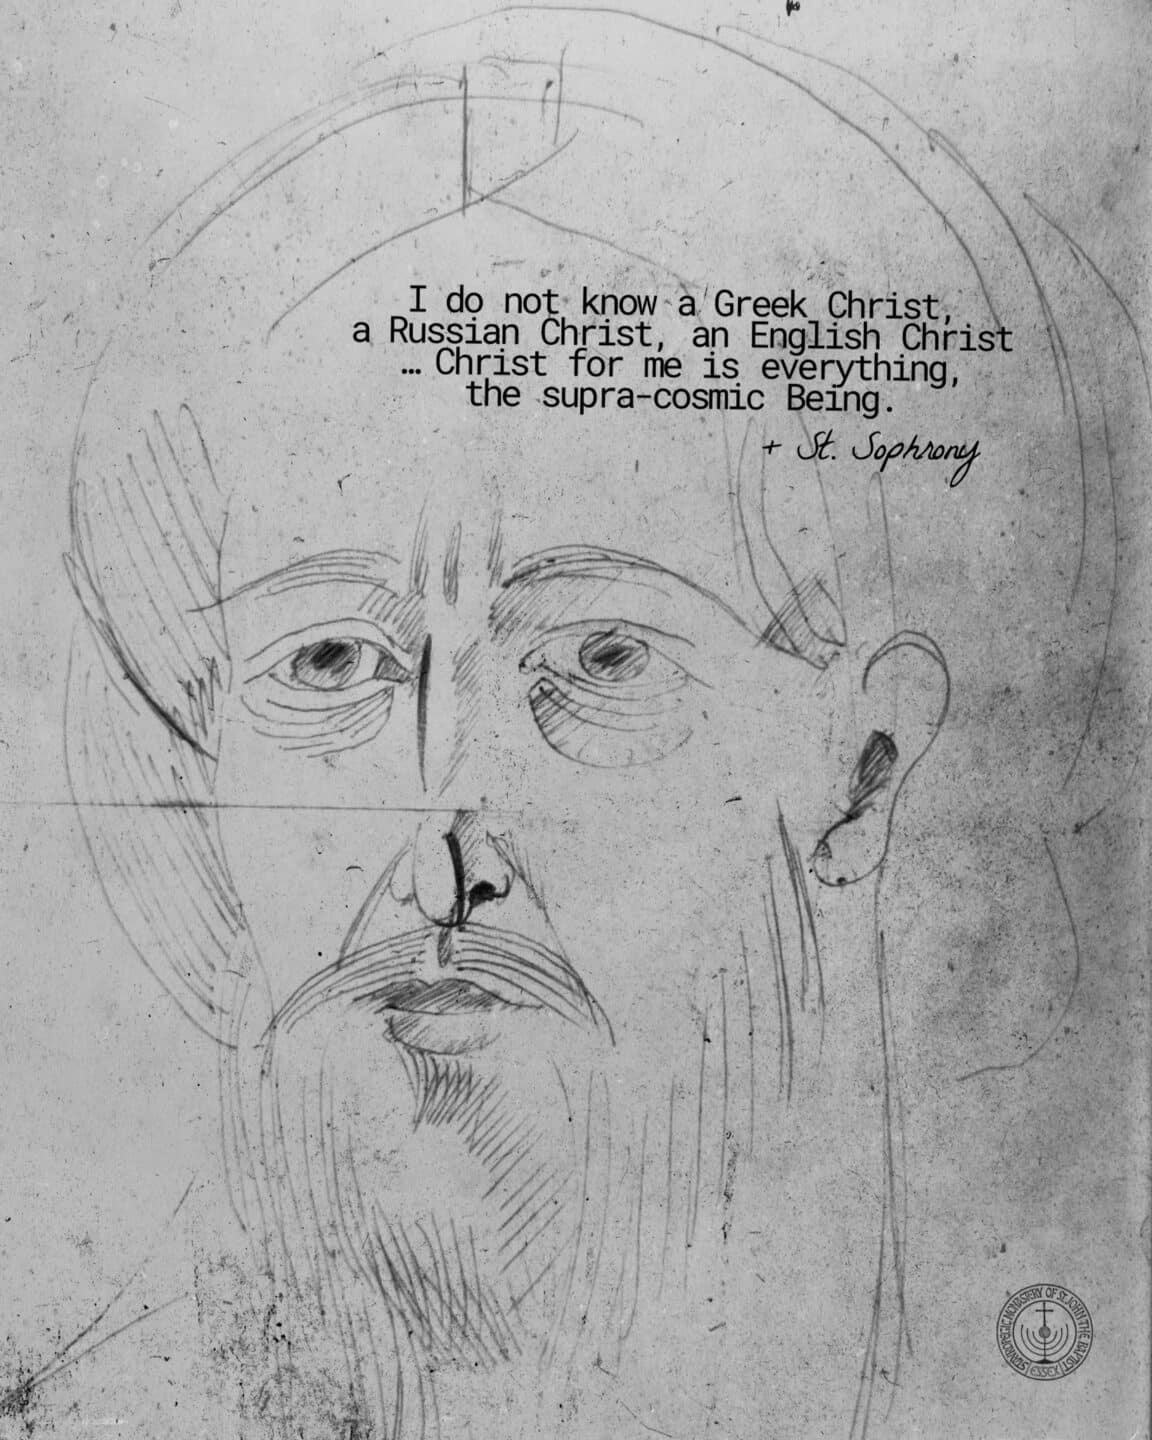 I do not know a Greek Christ,
a Russian Christ, an English Christ
… Christ for me is everything,
the supra-cosmic Being.
+ St. Sophrony
STAVROPEGIC MONASTERY OF ST. JOHN THE BAPTIST
ESSEX